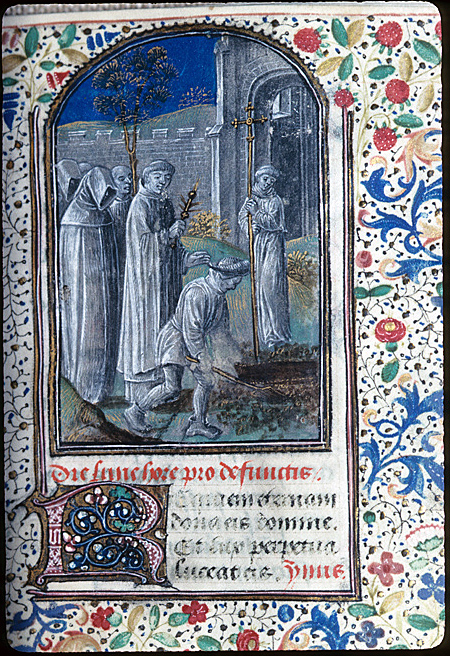 Die lune hore pro defunctis.
Requiem eternam
dona eis domine.
Et lux perpetua
luceat eis. ymus.